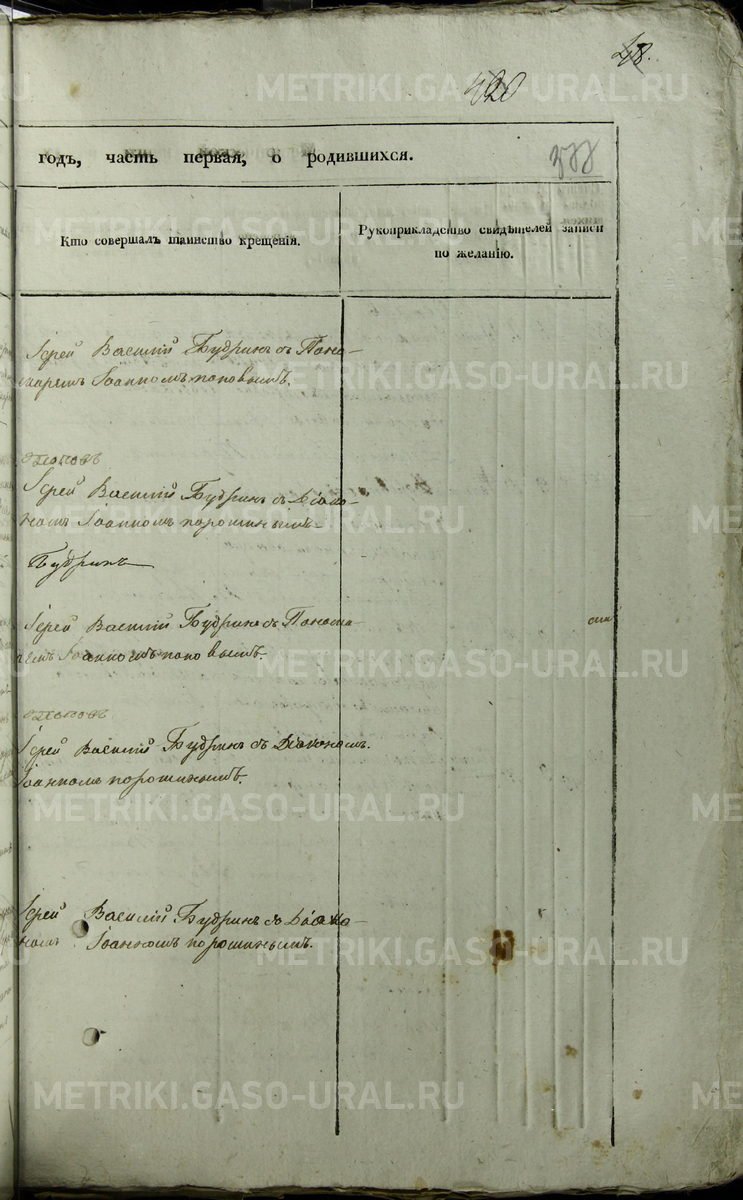 48.
420
годъ, часть первая, о родившихся.
577
Кто совершалъ таинство крещенія.
Рукоприкладство свидѣтелей записи
по желанію.
Іерей Василій Будринъ съ Поно-
маремъ Іоанномъ поповымъ.
Іерей Василій Будринъ съ Діако-
номъ Іоанномъ порошинымъ
Будринъ
Іерей Василій Будринъ съ Понома
ремъ Іоанномъ поповымъ.
Іерей Василій Будринъ съ Діакономъ.
Іоанномъ порошинымъ.
Іерей Василій Будринъ съ Діако-
номъ Іоанномъ порошинымъ.
METRIKI.GASO-URAL.RU